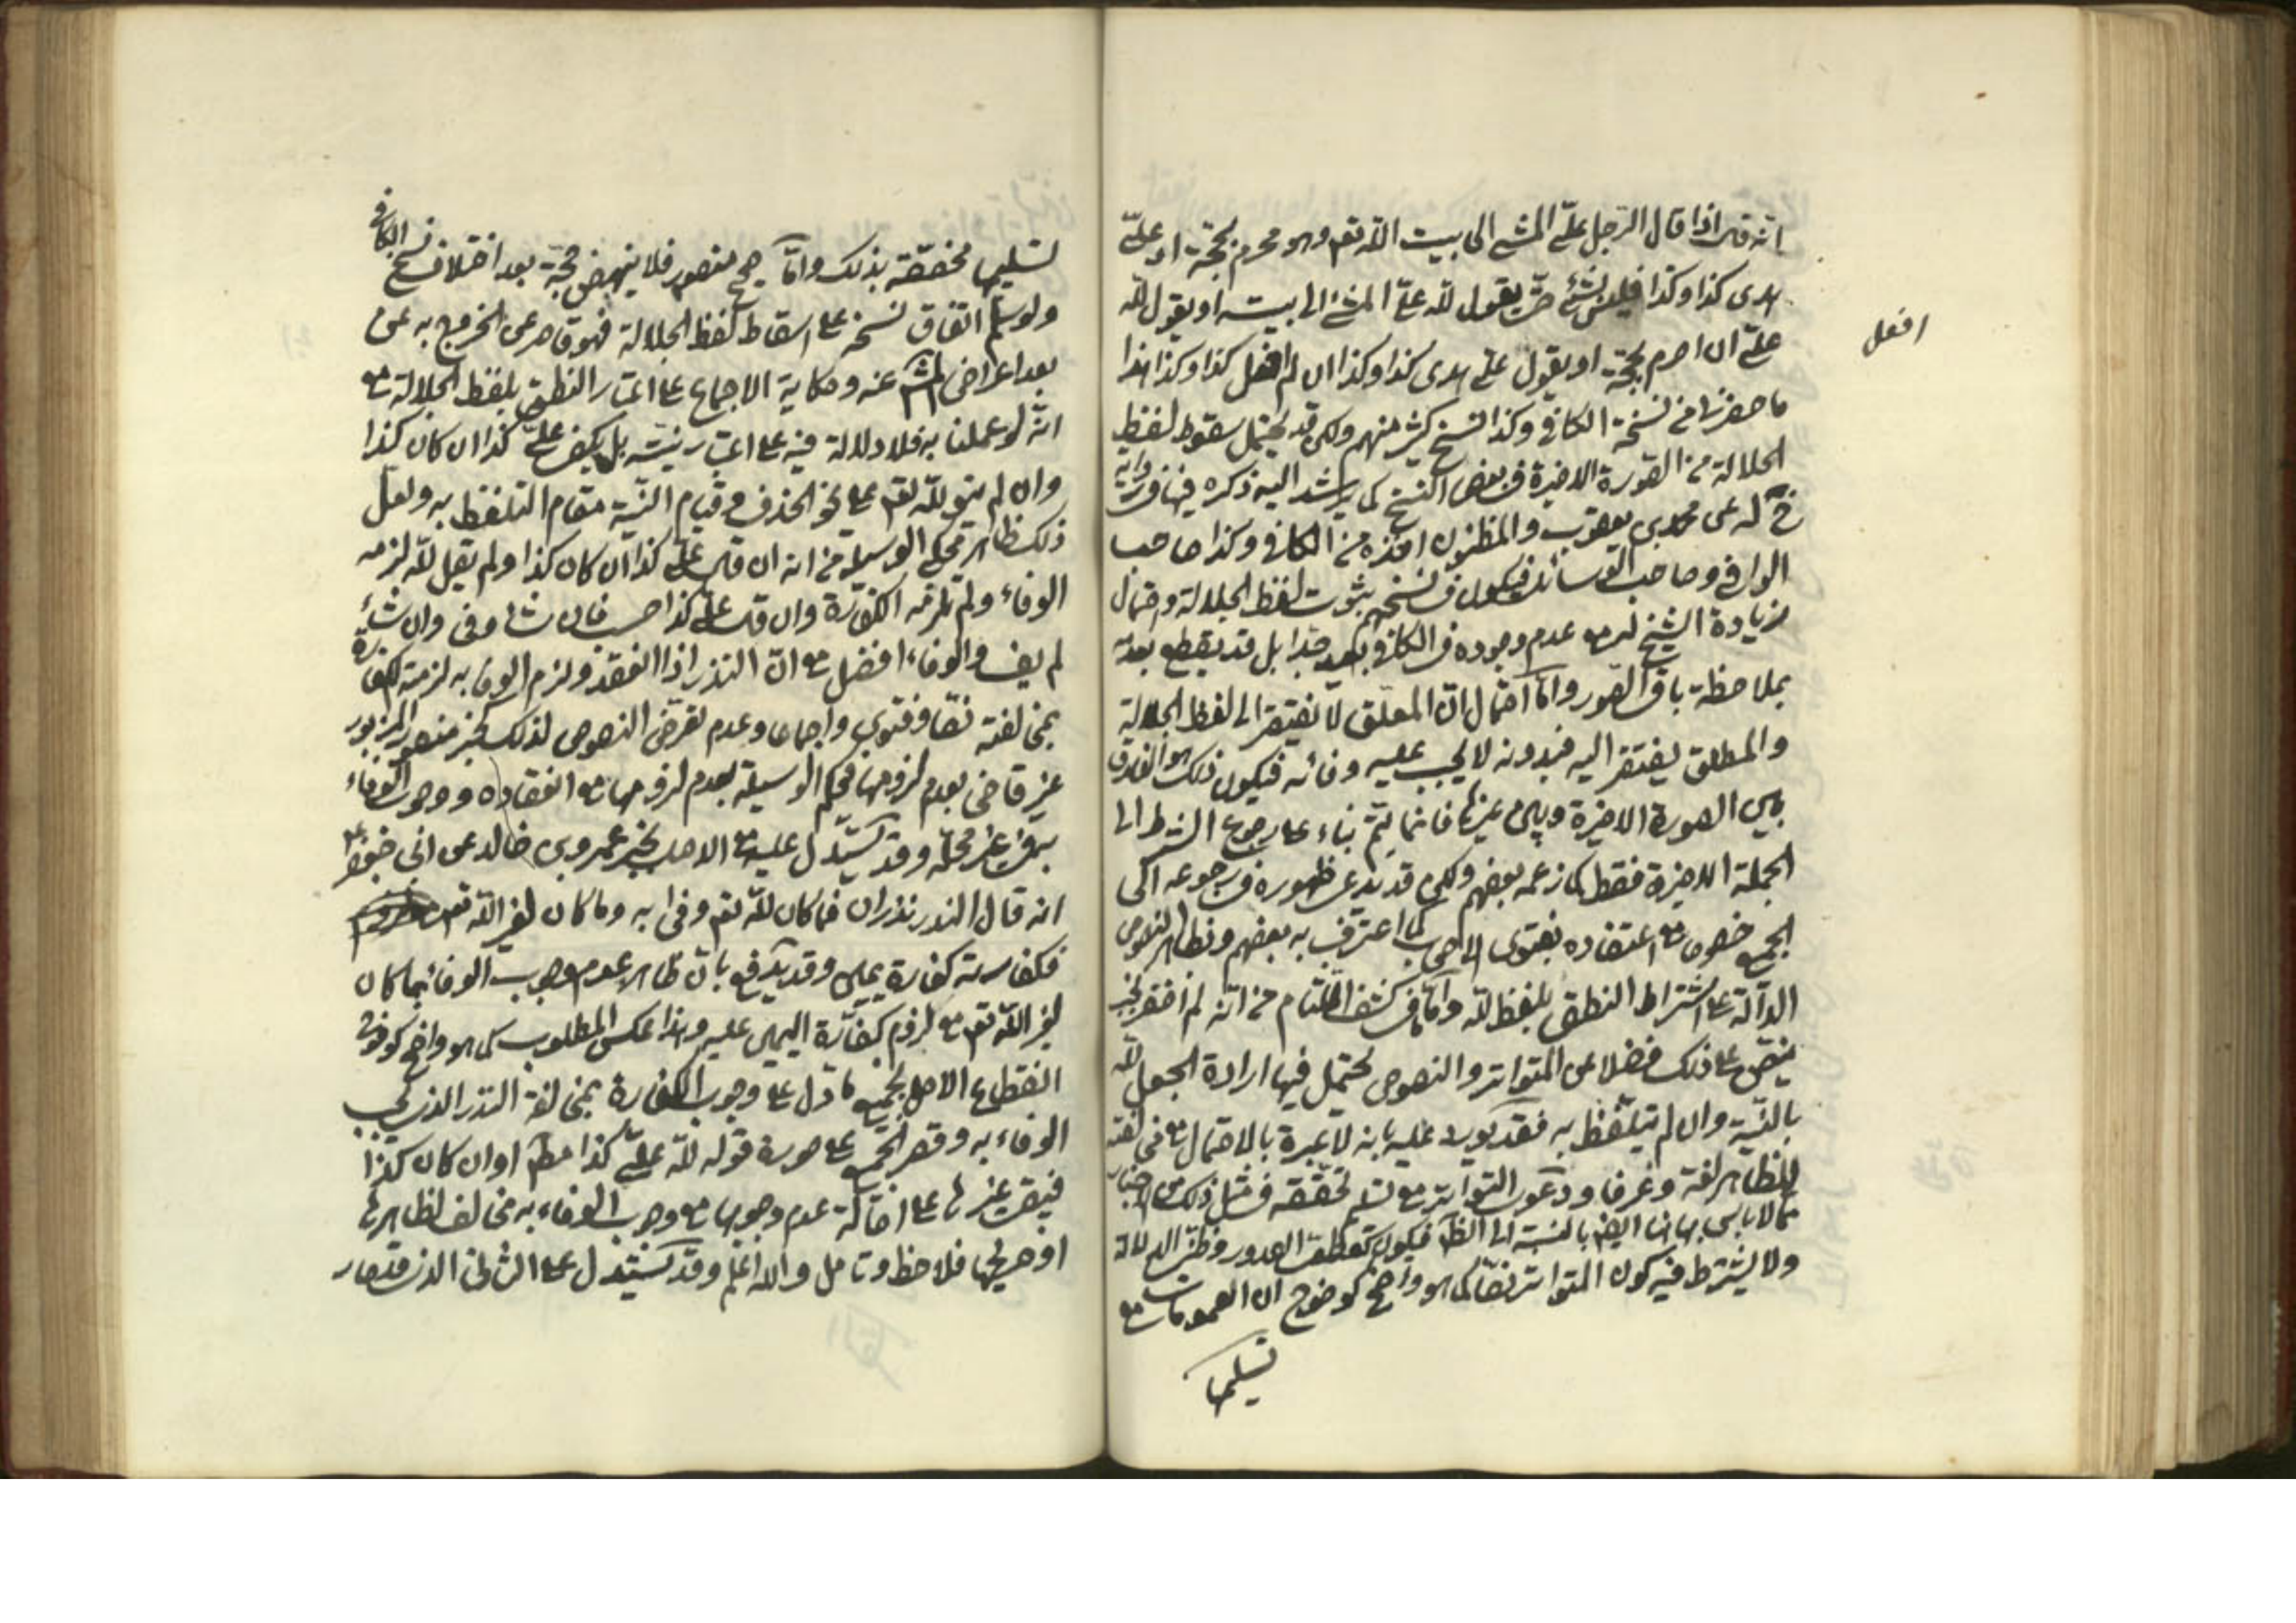 انه قال اذا قال الرجل علىّ المشى الى بيت الله تعم وهو محرم بحجّة او علىّ
هدى كذا وكذا فليس بشئ حتى يقول لله علىّ المشى الى بيته او يقول لله
علىّ ان احرم بحجّة او يقول علىّ هدى كذا وكذا ان لم افعل كذا وكذا هذا
افعل
ما حضرنا من نسخة الكافى وكذا النسخ كثير منهم ولكن قد يحتمل سقوط لفظ
الجلالة من الصّورة الاخيرة فى بعض النسخ كما يرشد اليه ذكره فيها فى رواية
خ له عن محمد بن يعقوب والمظنون اخذه من الكافى وكذا صاحب
الوافى وصاحب الوسائل فيكون فى نسخهم ثبوت لفظ الجلالة واحتمال
زيادة الشيخ له مع عدم وجوده فى الكافى بعيد جدا بل قد يقطع بعدمه
بملاحظة باقى الصور وامّا احتمال انّ المعلّق لا يفتقر الى لفظ الجلالة
والمطلق يفتقر اليه فبدونه لا يجب عليه وفائه فيكون ذلك هو الفارق
بين الصورة الاخيرة وبين غيرها فانما يتمّ بناء على رجوع الشرط الى
الجملة الاخيرة فقط كما زعمه بعضهم ولكن قد يدعى ظهوره فى رجوعه الى
الجميع خصوصا مع اعتضاده بفتوى الاصحاب كما اعترف به بعضهم وبظاهر النصوص
الدالّة على اشتراط النطق بلفظ لله وامّا ما فى كشف اللثام من انّه لم اظفر بخبر
ينصّ على ذلك فضلا عن المتواتر والنصوص يحتمل فيها ارادة الجعل لله
بالنيّة وان لم يتلفّظ به فقد يورد عليه بانه لا عبرة بالاحتمال مع مخالفته
للظاهر لغة وعرفا ودعوى التواتر مع تسليم تحقّقه فى مثل ذلك من الاخبار
مما لا باس بها هنا ايضا بالنسبة الى الظّم فيكون مقطوع الصدور وظنّى الدلالة
ولا يشترط فيه كون المتواتر نصّا كما هو واضح كوضوح ان العمومات مع
تسليمها
تسليمها مخصّصة بذلك وامّا صحيح منصور فلا ينهض حجّة بعد اختلاف نسخ الكافى
ولو سلم اتفاق نسخه على اسقاط لفظ الجلالة فهو قاصر عن الخروج به عن
بعد اعراض المشهور عنه وحكاية الاجماع على اعتبار النطق بلفظ الجلالة مع
انّه لو عملنا به فلا دلالة فيه على اعتبار نيّته بل يكفى علىّ كذا ان كان كذا
وان لم ينو لله تعم على نحو الحذف وقيام النيّة مقام التلفظ به ولعل
ذلك ظاهر محكى الوسيلة من انه ان قال علىّ كذا ان كان كذا ولم يقل لله لزمه
الوفاء ولم تلزمه الكفّارة وان قال علىّ كذا حسب فان شاء وفى وان شاء
لم يف والوفاء افضل مع انّ النذر اذا انعقد ولزم الوفاء به لزمته الكفارة
بمخالفته نصّا وفتوى واجماعا وعدم تعرّض النصوص لذلك كخبر منصور المزبور
غير قاضى بعدم لزومها فحكم الوسيلة بعدم لزومها مع انعقاده ووجوب الوفاء
به فى غير محلّه وقد يستدل عليه مع الاصل بخبر عمرو بن خالد عن ابى جعفر ع
انه قال النذر نذران فما كان لله تعم وفى به وما كان لغير الله تعم
فكفارته كفارة يمين وقد يدفع بانّ ظاهره عدم وجوب الوفاء بما كان
لغير الله تعم مع لزوم كفّارة اليمين عليه وهذا عكس المطلوب كما هو واضح كوضوح
انقطاع الاصل بجميع ما دل على وجوب الكفارة بمخالفة النذر الذى يجب
الوفاء به وقصر الجميع على صورة قوله لله علىّ كذا مطم او ان كان كذا
فيبقى غيرها على اصالة عدم وجوبها مع وجوب الوفاء به مخالف لظاهرها
او صريحها فلاحظ وتامل والله اعلم وقد يستدل على الثانى الذى قد صار